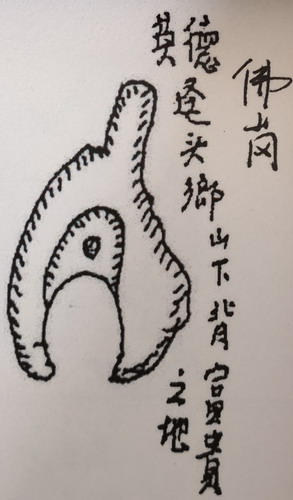 佛岗
英德迳头鄉山下背富貴
之地